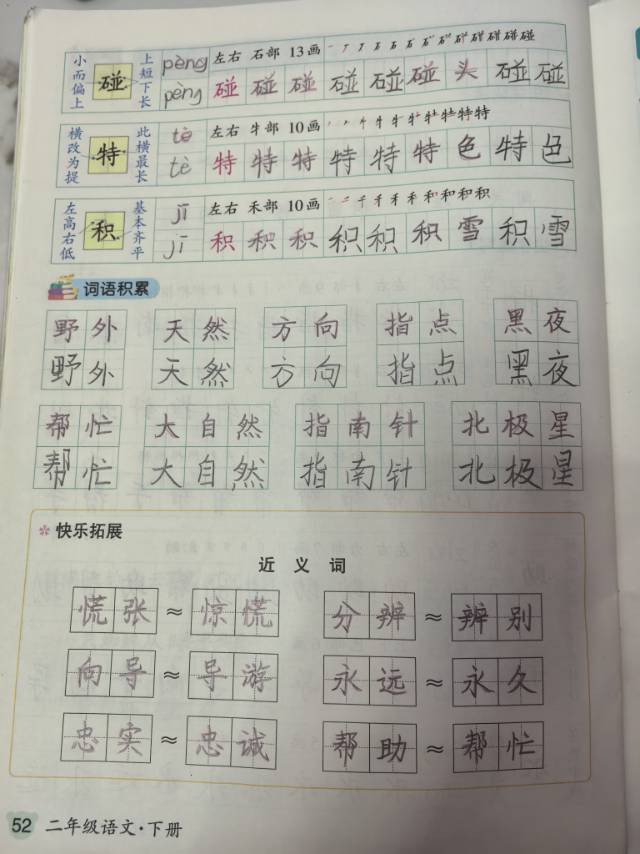 小而偏上 碰 上短下长 pèng 左右 石部 13画
pèng 碰 碰 碰 碰 碰 碰 头 碰 碰
横改为提 特 此横最长 tè 左右 牛部 10画
tè 特 特 特 特 特 特 色 特 色
左高右低 积 基本齐平 jī 左右 禾部 10画
jī 积 积 积 积 积 积 雪 积 雪
词语积累
野外 天然 方向 指点 黑夜
野外 天然 方向 指点 黑夜
帮忙 大自然 指南针 北极星
帮忙 大自然 指南针 北极星
快乐拓展
近义词
慌张≈惊慌 分辨≈辨别
向导≈导游 永远≈永久
忠实≈忠诚 帮助≈帮忙
52 二年级语文·下册